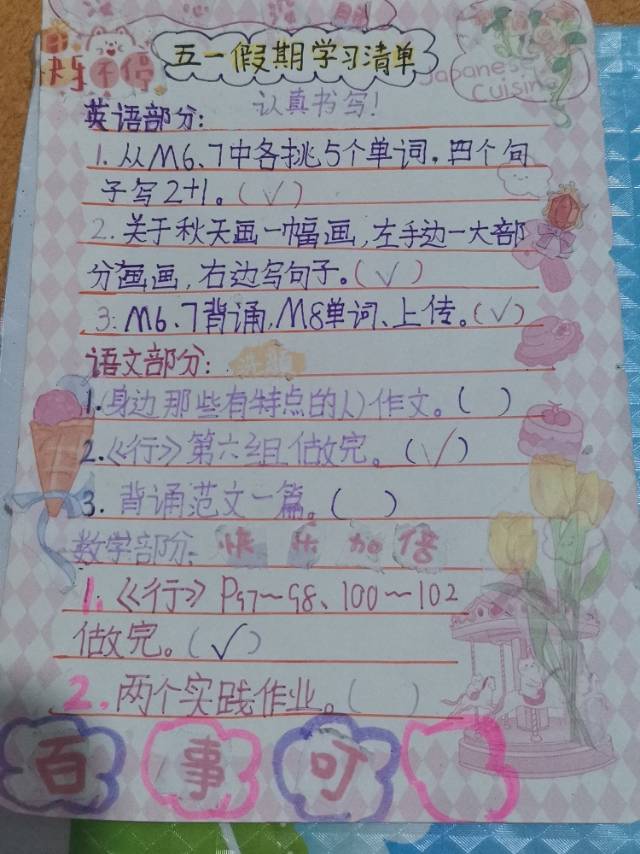 快乐不停
五一假期学习清单
Japanese
Cuisine
认真书写!
英语部分:
1.从M6、7中各挑5个单词,四个句
子写2+1。(√)
2.关于秋天画一幅画,左手边一大部
分画画,右边写句子。(√)
3:M6、7背诵,M8单词、上传。(√)
语文部分:
1.(身边那些有特点的人)作文。( )
2.《行》第六组做完。(√)
3.背诵范文一篇。( )
数学部分:快乐加倍
1.《行》P97~98、100~102
做完。(√)
2.两个实践作业。( )
百事叮